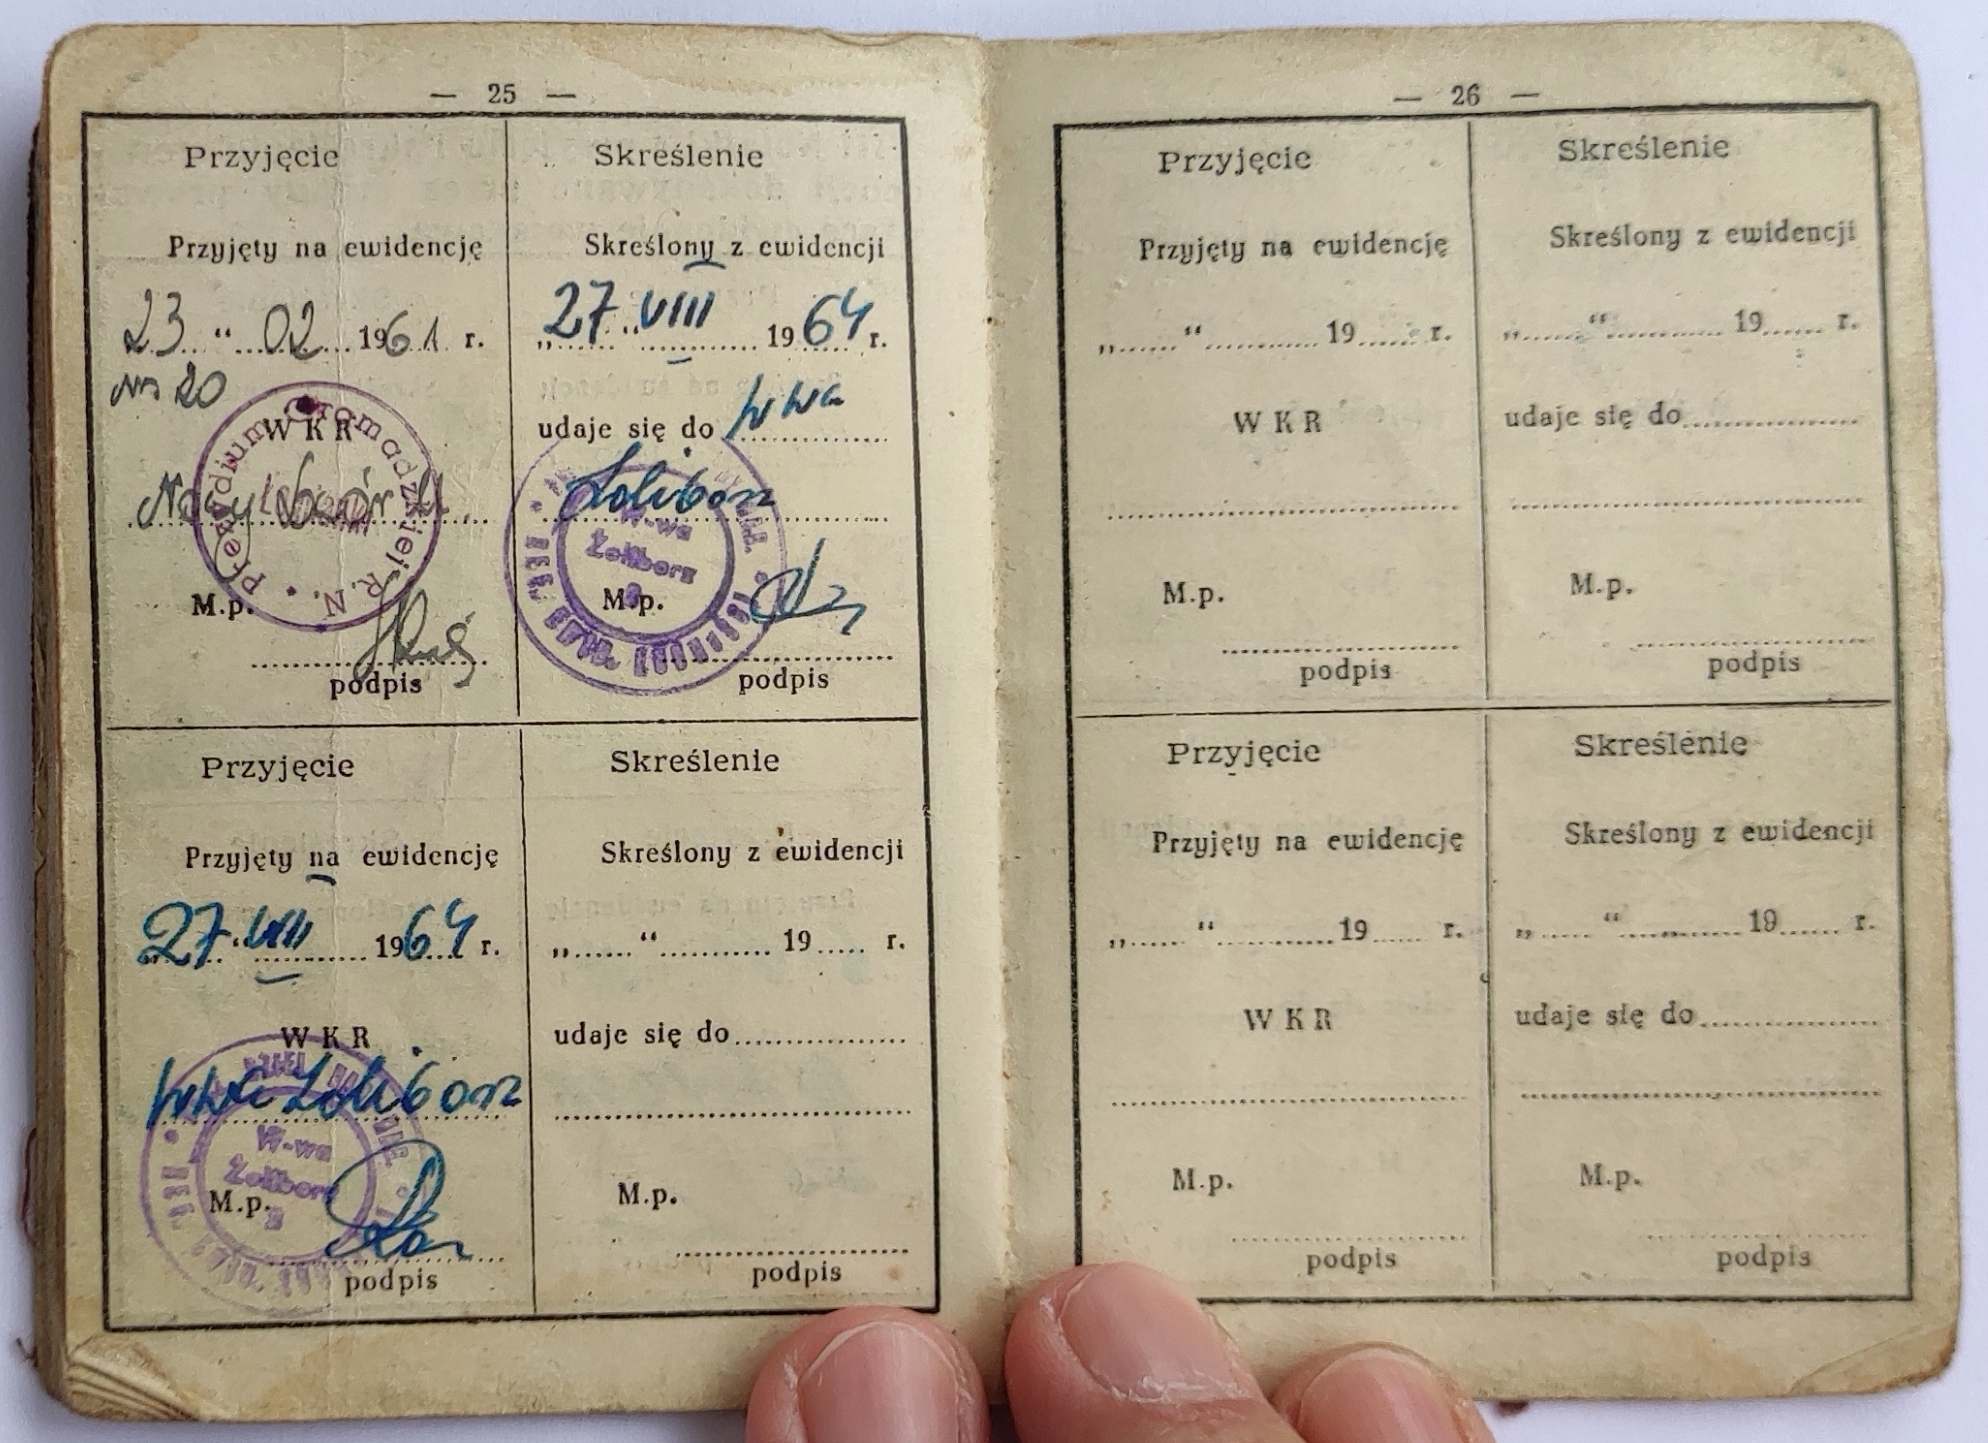 — 25 —
Przyjęcie
Przyjęty na ewidencję
23 “ 02 1961 r.
20
WKR
Nowy Dwór M.
Prezydium Gromadzkiej R.N.
M.p.
podpis
Skreślenie
Skreślony z ewidencji
„27 “ VIII 1964 r.
udaje się do Wwa
Żoliborz
W-wa
Żoliborz
M.p.
podpis
Przyjęcie
Przyjęty na ewidencję
27 VIII 1964 r.
WKR
Wwa Żoliborz
W-wa
Żoliborz
M.p.
podpis
Skreślenie
Skreślony z ewidencji
„......“ ........... 19..... r.
udaje się do
M.p.
podpis
— 26 —
Przyjęcie
Przyjęty na ewidencję
„......“ ........... 19..... r.
WKR
M.p.
podpis
Skreślenie
Skreślony z ewidencji
„......“ ........... 19..... r.
udaje się do
M.p.
podpis
Przyjęcie
Przyjęty na ewidencję
„......“ ........... 19..... r.
WKR
M.p.
podpis
Skreślenie
Skreślony z ewidencji
„......“ ........... 19..... r.
udaje się do
M.p.
podpis